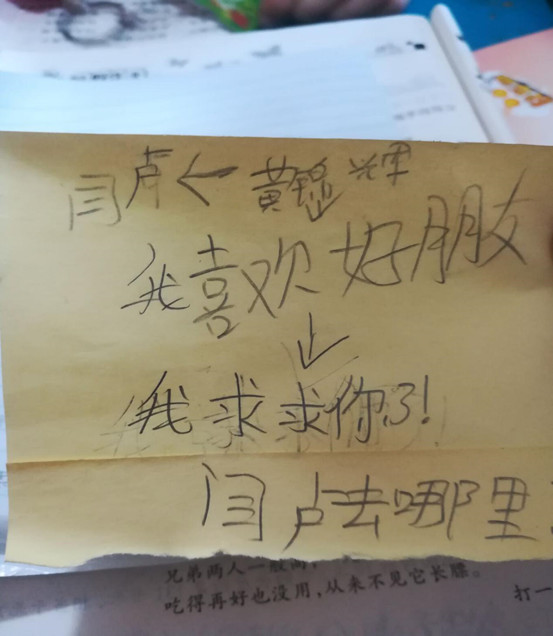 闫芦←黄 辉
我喜欢好朋友
↓
我求求你了!
闫卢去哪里
兄弟两人一般高,
吃得再好也没用,从来不见它长膘。
打一